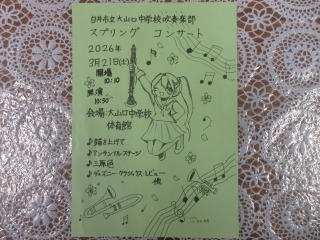 白井市立大山口中学校吹奏楽部
スプリング コンサート
2026年
3月21日(土)
開場
10:10
開演
10:30
会場:大山口中学校
体育館
♪錨を上げて
♪アンサンブルステージ
♪三原色
♪ディズニー・クラシックス・レビュー
他